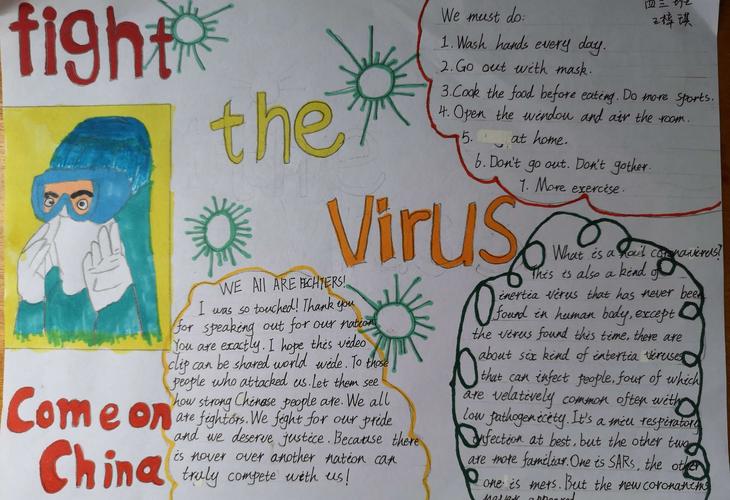 fight
the
Virus
We must do:
四三班
王梓琪
1. Wash hands every day.
2. Go out with mask.
3. Cook the food before eating. Do more sports.
4. Open the window and air the room.
5. at home.
6. Don't go out. Don't gother.
7. More exercise.
WE All ARE FIGHTERS!
I was so touched! Thank you
for speaking out for our nation
You are exactly. I hope this video
clip can be shared world wide. To those
people who attacked us. let them see
how strong Chinese people are. We all
are fightors. We fight for our pride
and we deserve justice. Because there
is nover over another nation can
truly compete with us!
What is a coronavirus?
This is also a kind of
inertia virus that has never been
found in human body, except
the virus found this time, there are
about six kind of intertia viruses
that can infect people, four of which
are velatively common often with
low pathogenicety. It's a mieu respiratory
infection at best, but the other two
are more familiar. One is SARs, the other
one is mers. But the new coronavirus
never appeared
Come on
China